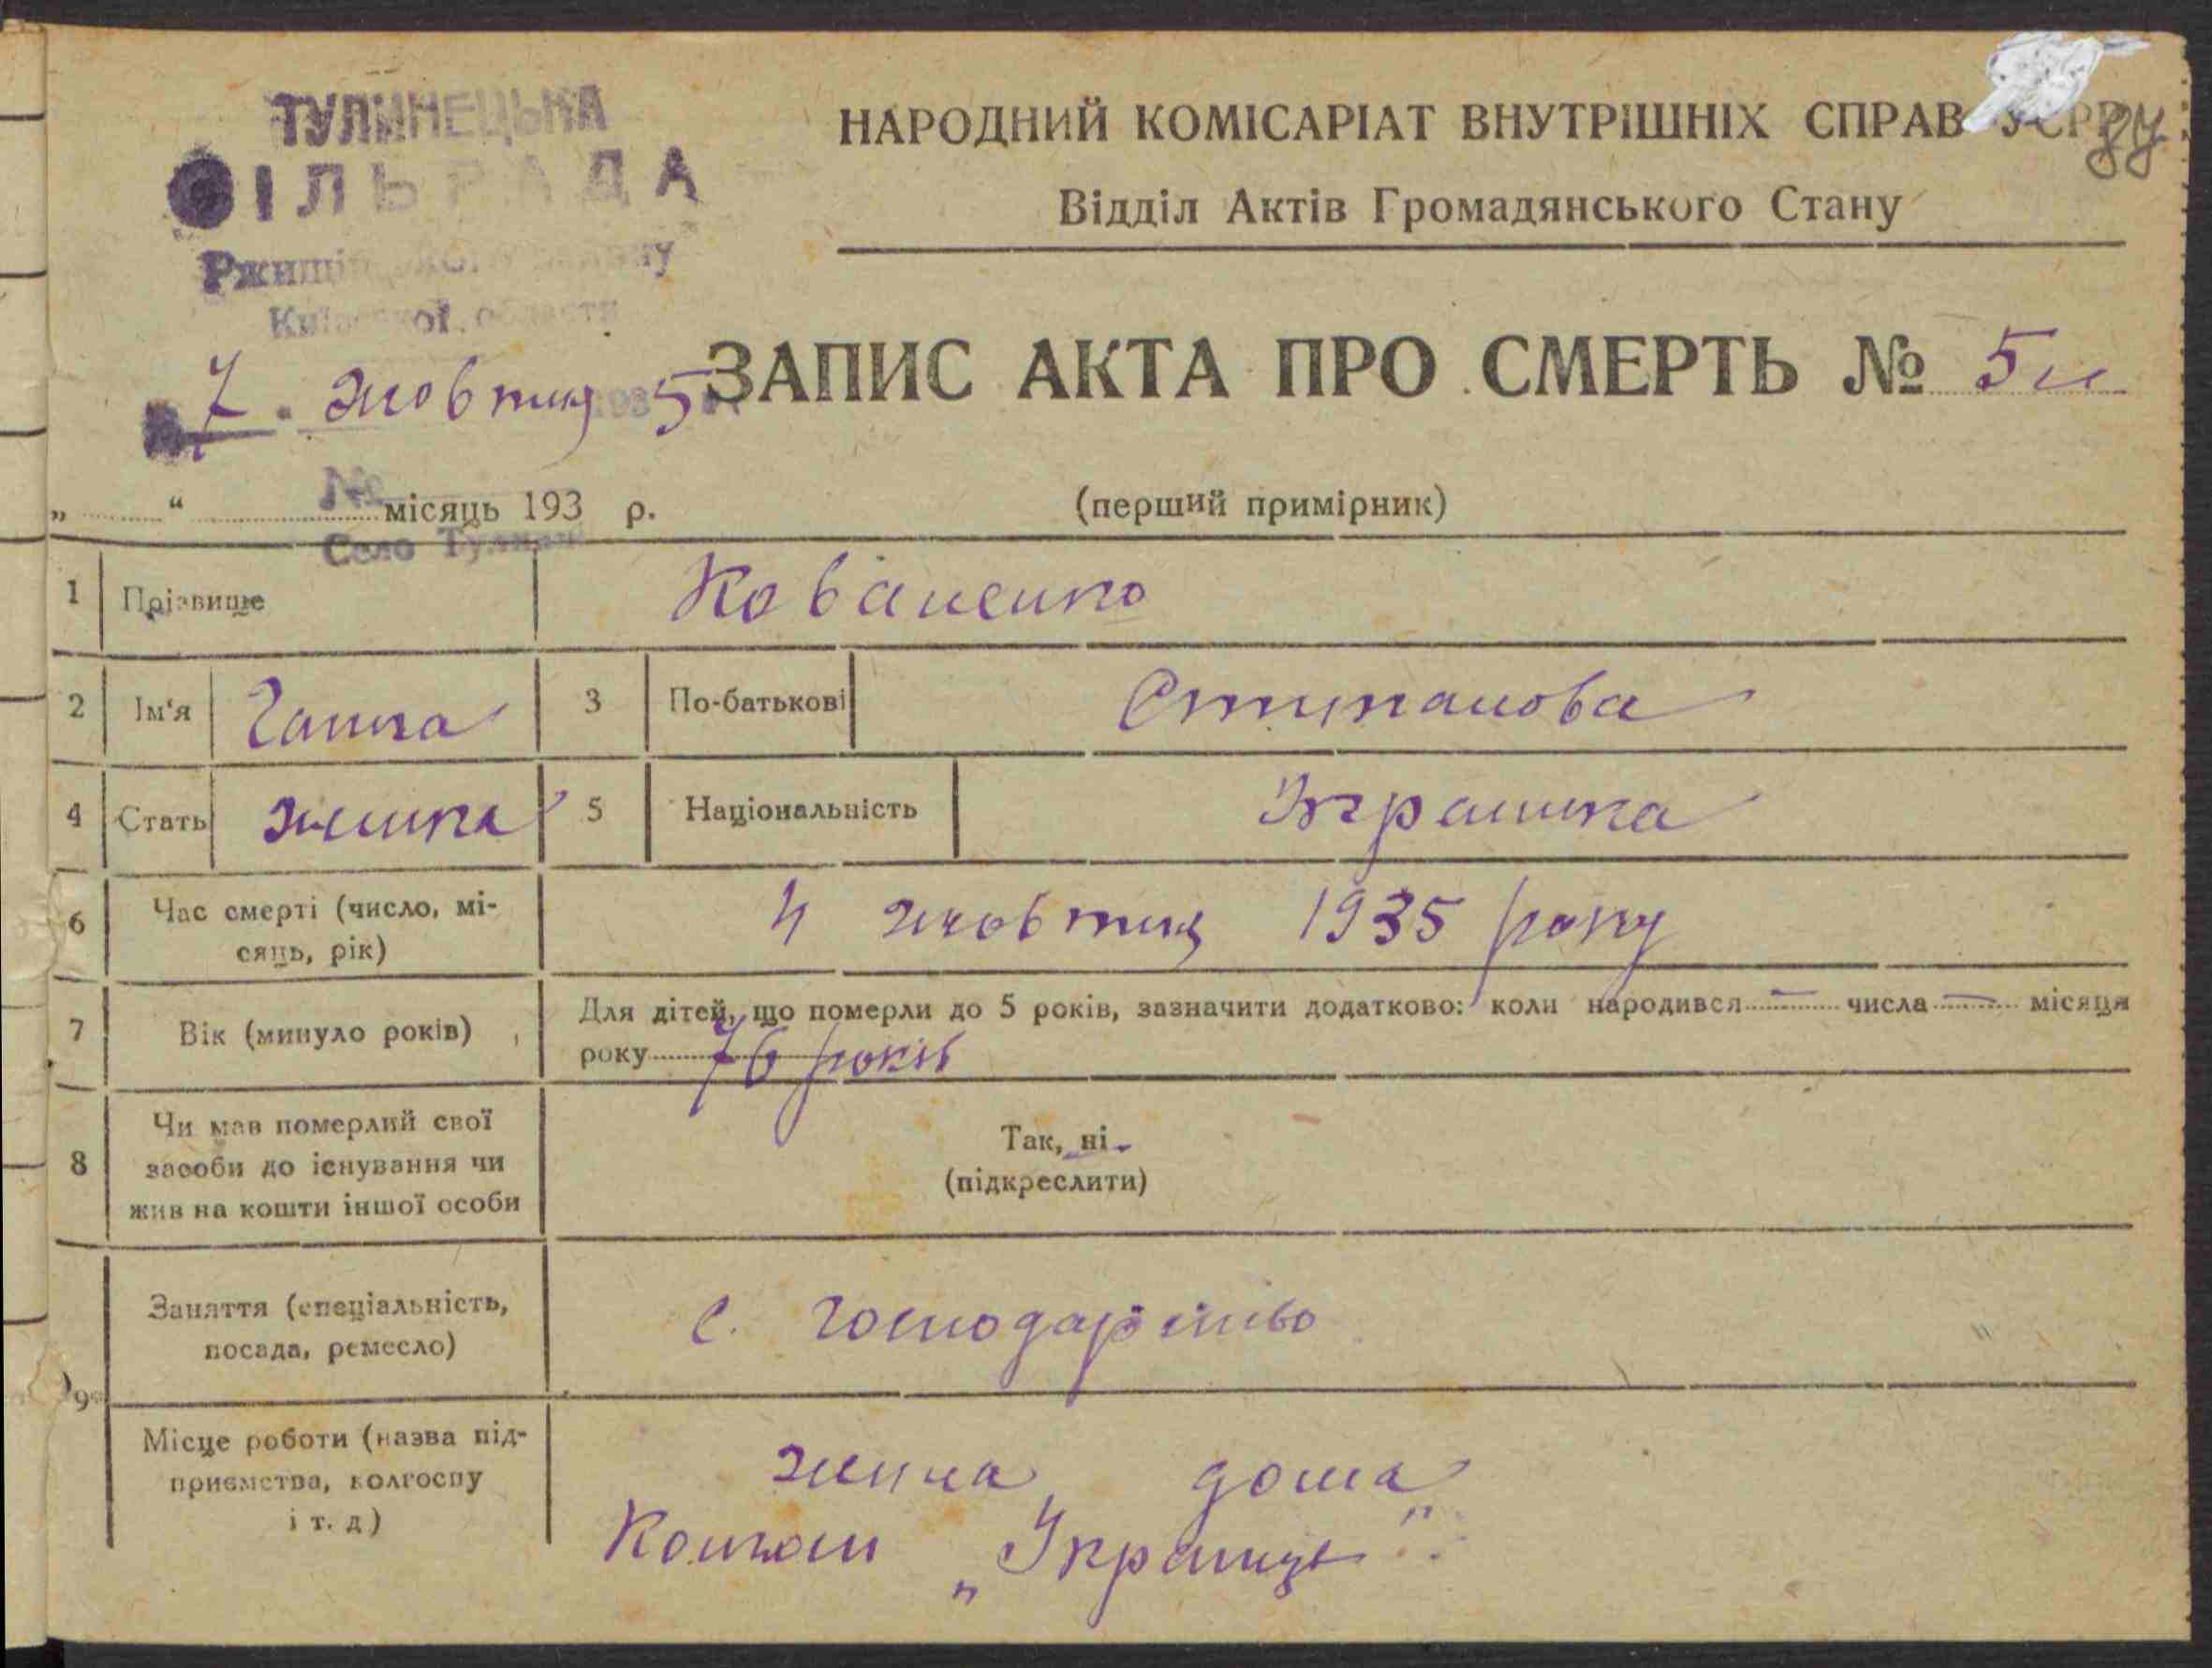 ТУЛИНЕЦЬКА
СІЛЬРАДА
Ржищівського району
Київської области
7 жовтня 1935
НАРОДНИЙ КОМІСАРІАТ ВНУТРІШНІХ СПРАВ УСРР
Відділ Актів Громадянського Стану
ЗАПИС АКТА ПРО СМЕРТЬ № 54
№
„ “ місяць 193 р.
(перший примірник)
Село Тулинці
1 Прізвище Коваленко
2 Ім'я Ганна 3 По-батькові Степанова
4 Стать жінка 5 Національність Українка
6 Час смерті (число, мі-
сяць, рік) 4 жовтня 1935 року
7 Вік (минуло років) Для дітей, що померли до 5 років, зазначити додатково: коли народився — числа — місяця
року 76 років
8 Чи мав померлий свої
засоби до існування чи
жив на кошти іншої особи
Так, ні
(підкреслити)
9 Заняття (спеціальність,
посада, ремесло) с. господарство
Місце роботи (назва під-
приємства, колгоспу
і т. д) дома